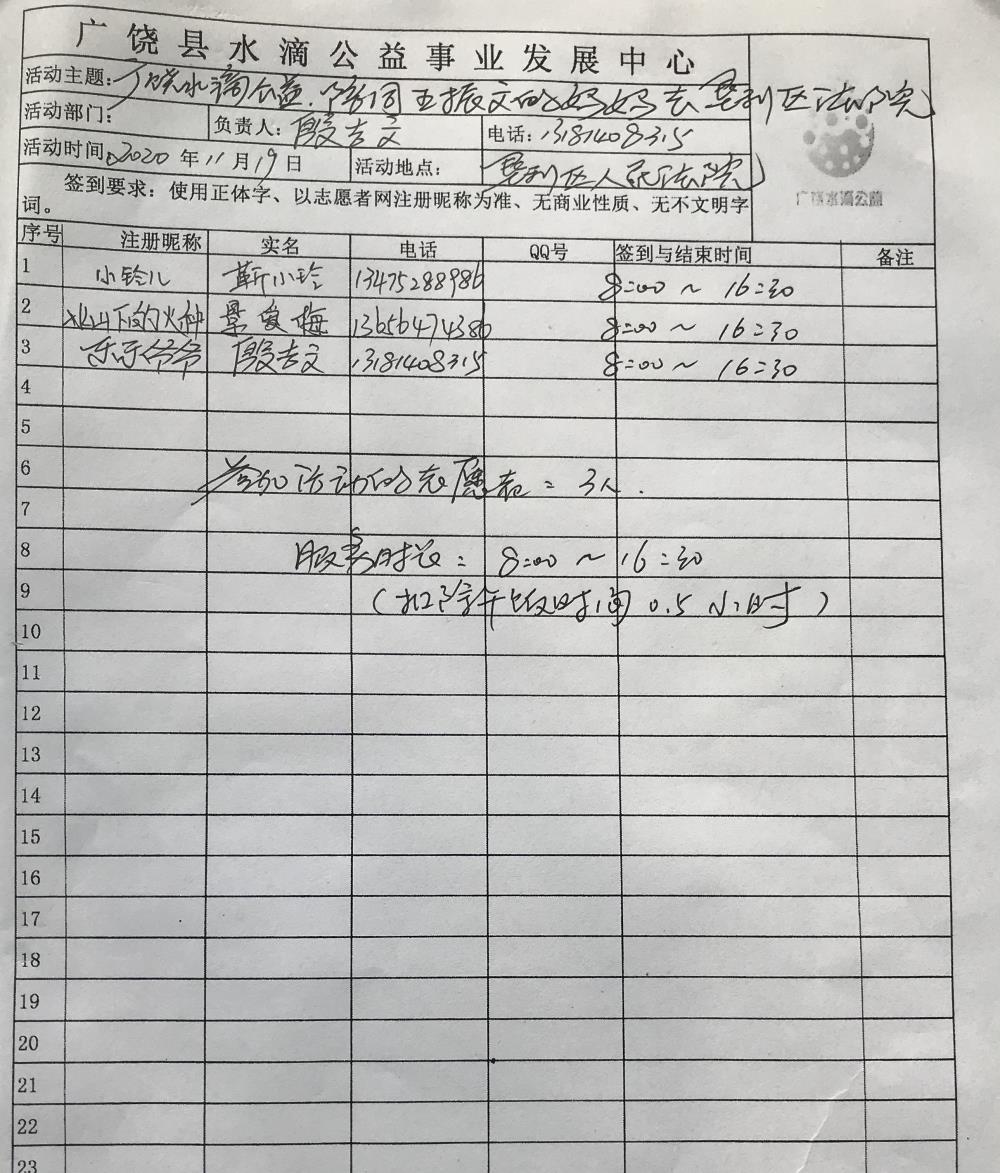 广饶县水滴公益事业发展中心
活动主题：广饶水滴公益.陪同王振文的妈妈去垦利区法院
活动部门： 负责人：殷吉文 电话：13181408315
活动时间：2020年11月19日 活动地点：垦利区人民法院
广饶水滴公益
签到要求：使用正体字、以志愿者网注册昵称为准、无商业性质、无不文明字
词。
序号 注册昵称 实名 电话 QQ号 签到与结束时间 备注
1 小铃儿 靳小玲 13475288986 8:00～16:30
2 冰山下的火种 景爱梅 13656474386 8:00～16:30
3 乐乐爷爷 殷吉文 13181408315 8:00～16:30
4
5
6 参加活动的志愿者：3人.
7
8 服务时长：8:00～16:30
9 （扣除午饭时间0.5小时）
10
11
12
13
14
15
16
17
18
19
20
21
22
23